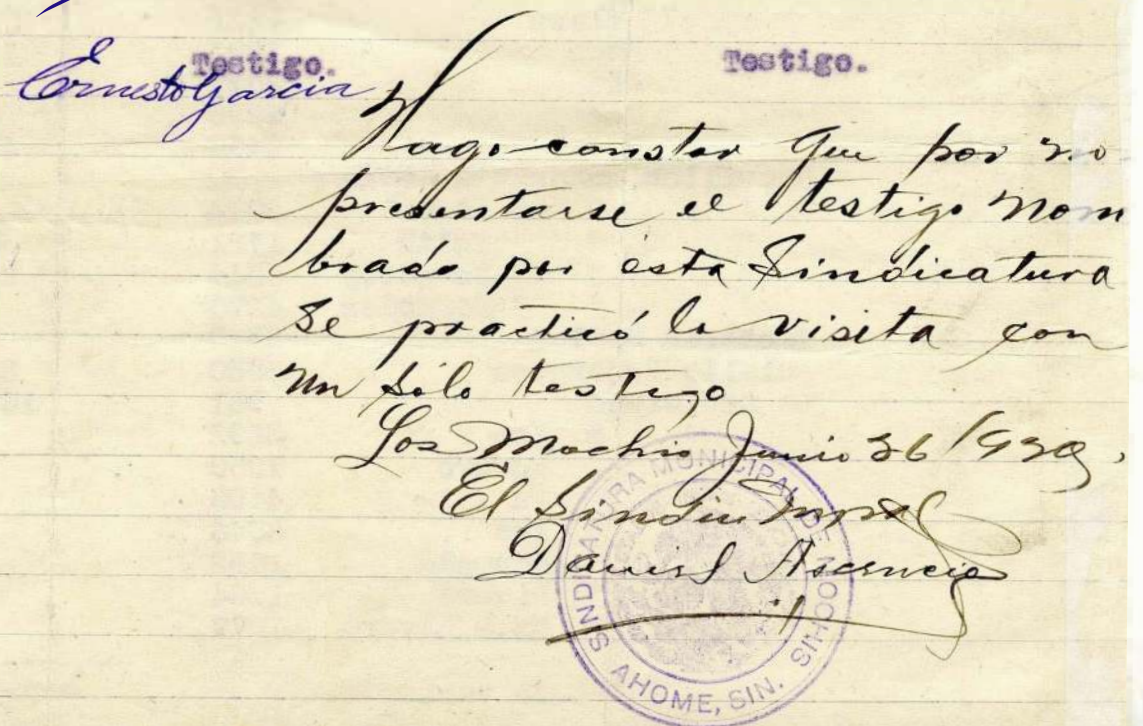 Testigo. Testigo.
Ernesto Garcia
Hago constar que por no
presentarse el testigo nom
brado por esta Sindicatura
se practicó la visita con
un sólo testigo
Los Mochis Junio 26/929.
El Sindico Mpal
Daniel Ascencio
SINDICATURA MUNICIPAL DE MOCHIS
AHOME, SIN.